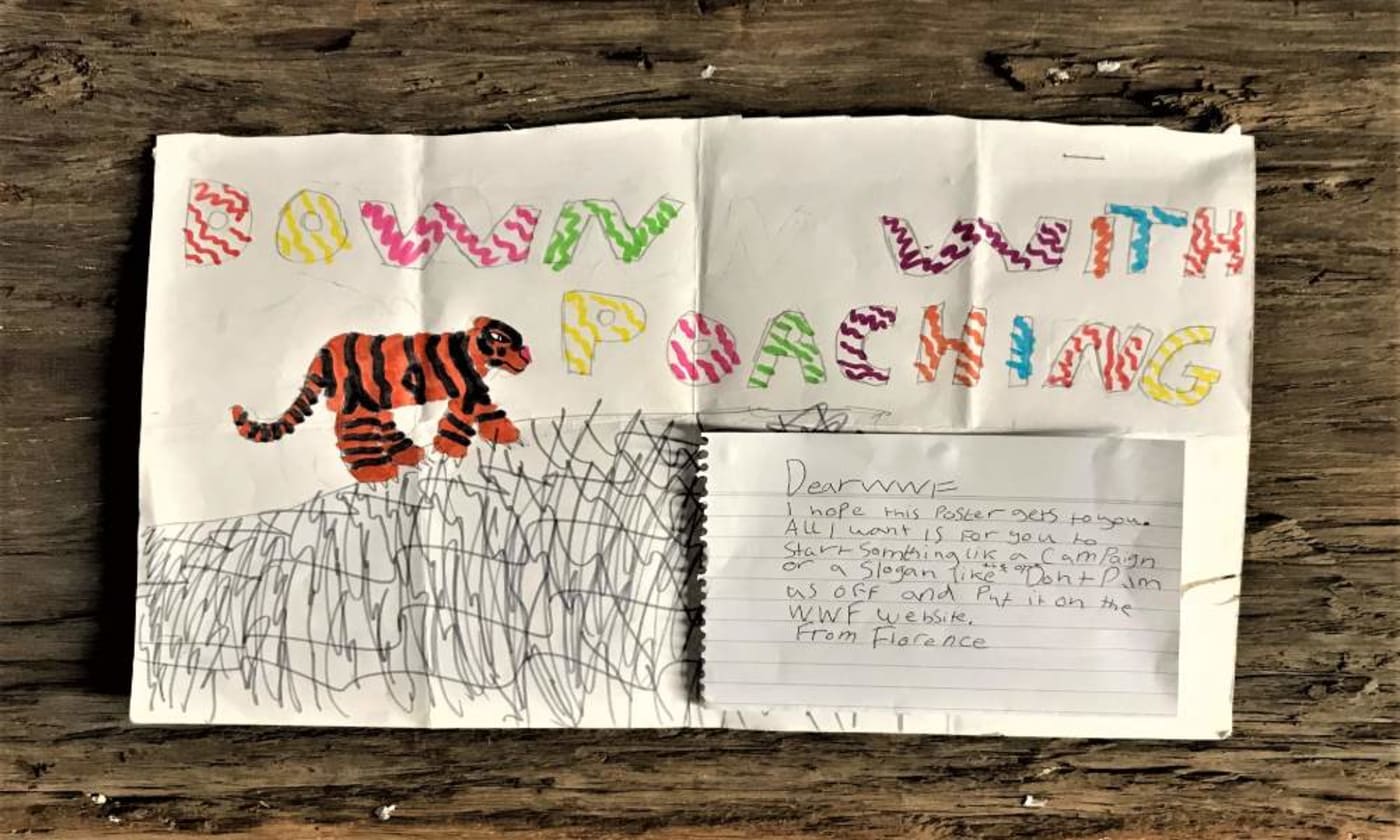 DOWN WITH
POACHING
Dear WWF
I hope this Poster gets to you.
All I want is for you to
start Somthing lik a CamPaign
or a Slogan like this one Don't PJm
us off and Put it on the
WWF website.
From Florence